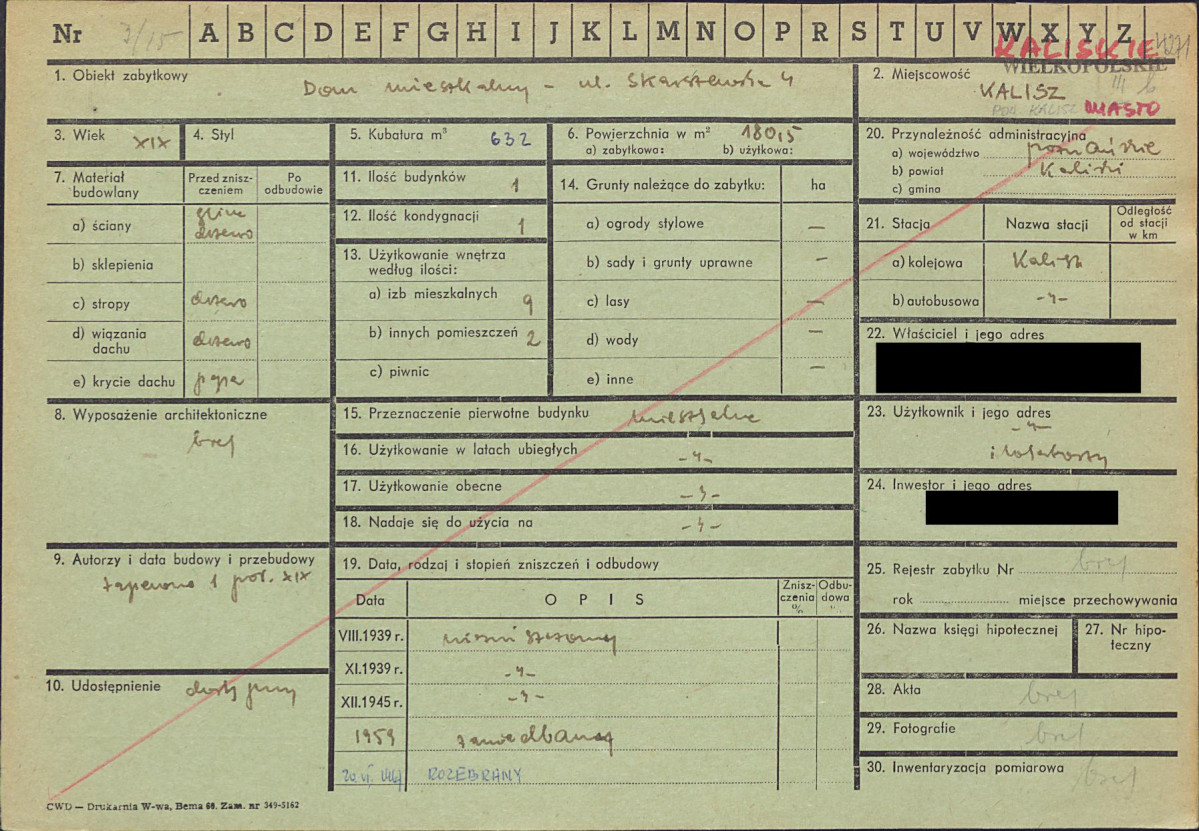 Nr 7/15 A B C D E F G H I J K L M N O P R S T U V W X Y Z
KALISKIE
WIELKOPOLSKIE
1. Obiekt zabytkowy
Dom mieszkalny – ul. Skarszewska 4
2. Miejscowość
KALISZ
POW. KALISZ MIASTO
3. Wiek XIX
4. Styl
5. Kubatura m³ 632
6. Powierzchnia w m² 180,5
a) zabytkowa: b) użytkowa:
20. Przynależność administracyjna
a) województwo poznańskie
b) powiat Kaliski
c) gmina
7. Materiał budowlany
Przed zniszczeniem
Po odbudowie
a) ściany glina drzewo
b) sklepienia
c) stropy drzewo
d) wiązania dachu drzewo
e) krycie dachu papa
11. Ilość budynków 1
12. Ilość kondygnacji 1
13. Użytkowanie wnętrza według ilości:
a) izb mieszkalnych 9
b) innych pomieszczeń 2
c) piwnic
14. Grunty należące do zabytku: ha
a) ogrody stylowe —
b) sady i grunty uprawne –
c) lasy —
d) wody –
e) inne –
21. Stacja Nazwa stacji Odległość od stacji w km
a) kolejowa Kalisz
b) autobusowa -"-
22. Właściciel i jego adres
8. Wyposażenie architektoniczne
brej
15. Przeznaczenie pierwotne budynku mieszkalne
16. Użytkowanie w latach ubiegłych -"-
17. Użytkowanie obecne -"-
18. Nadaje się do użycia na -"-
23. Użytkownik i jego adres
-"-
i lokatorzy
24. Inwestor i jego adres
9. Autorzy i data budowy i przebudowy
zapewne 1 poł. XIX
19. Data, rodzaj i stopień zniszczeń i odbudowy
Data OPIS Zniszczenia % Odbudowa "
VIII.1939 r.
XI.1939 r. -"-
XII.1945 r. -"-
1959 zaniedbany
ROZEBRANY
25. Rejestr zabytku Nr brej
rok miejsce przechowywania
26. Nazwa księgi hipotecznej
27. Nr hipoteczny
10. Udostępnienie dostępny
28. Akta brej
29. Fotografie brej
30. Inwentaryzacja pomiarowa brej
CWD — Drukarnia W-wa, Bema 60. Zam. nr 349-5162